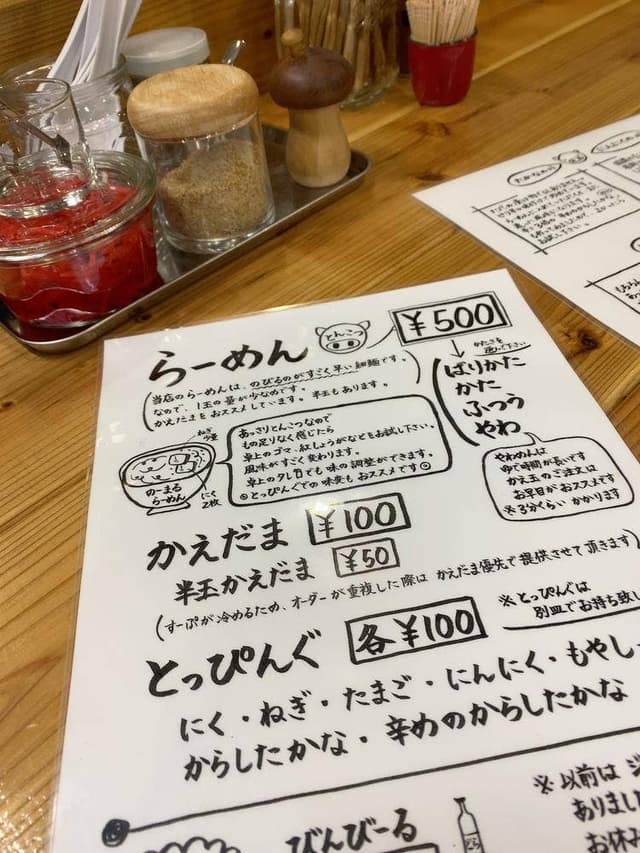 らーめん
とんこつ
¥500
かたさを
選んで下さい
ばりかた
かた
ふつう
やわ
当店のらーめんは、のびるのがすごく早い細麺です。
なので、1玉の量が少なめです。
かえだまをおススメしています。半玉もあります。
ねぎ
少量
のーまる
らーめん
にく
2枚
あっさりとんこつなので
もの足りなく感じたら
卓上のゴマ、紅しょうがなどをお試し下さい。
風味がすごく変わります。
卓上のタレでも味の調整ができます。
とっぴんぐでの味変もおススメです
やわめんは
ゆで時間が長いです
かえ玉のご注文は
お早目がおススメです
※3分くらいかかります
かえだま ¥100
半玉かえだま ¥50
(すーぷが冷めるため、オーダーが重複した際は かえだま優先で提供させて頂きます)
とっぴんぐ 各¥100
※とっぴんぐは
別皿でお持ち致し
にく・ねぎ・たまご・にんにく・もやし
からしたかな・辛めのからしたかな
びんびーる
※以前は
ありまし
お休み